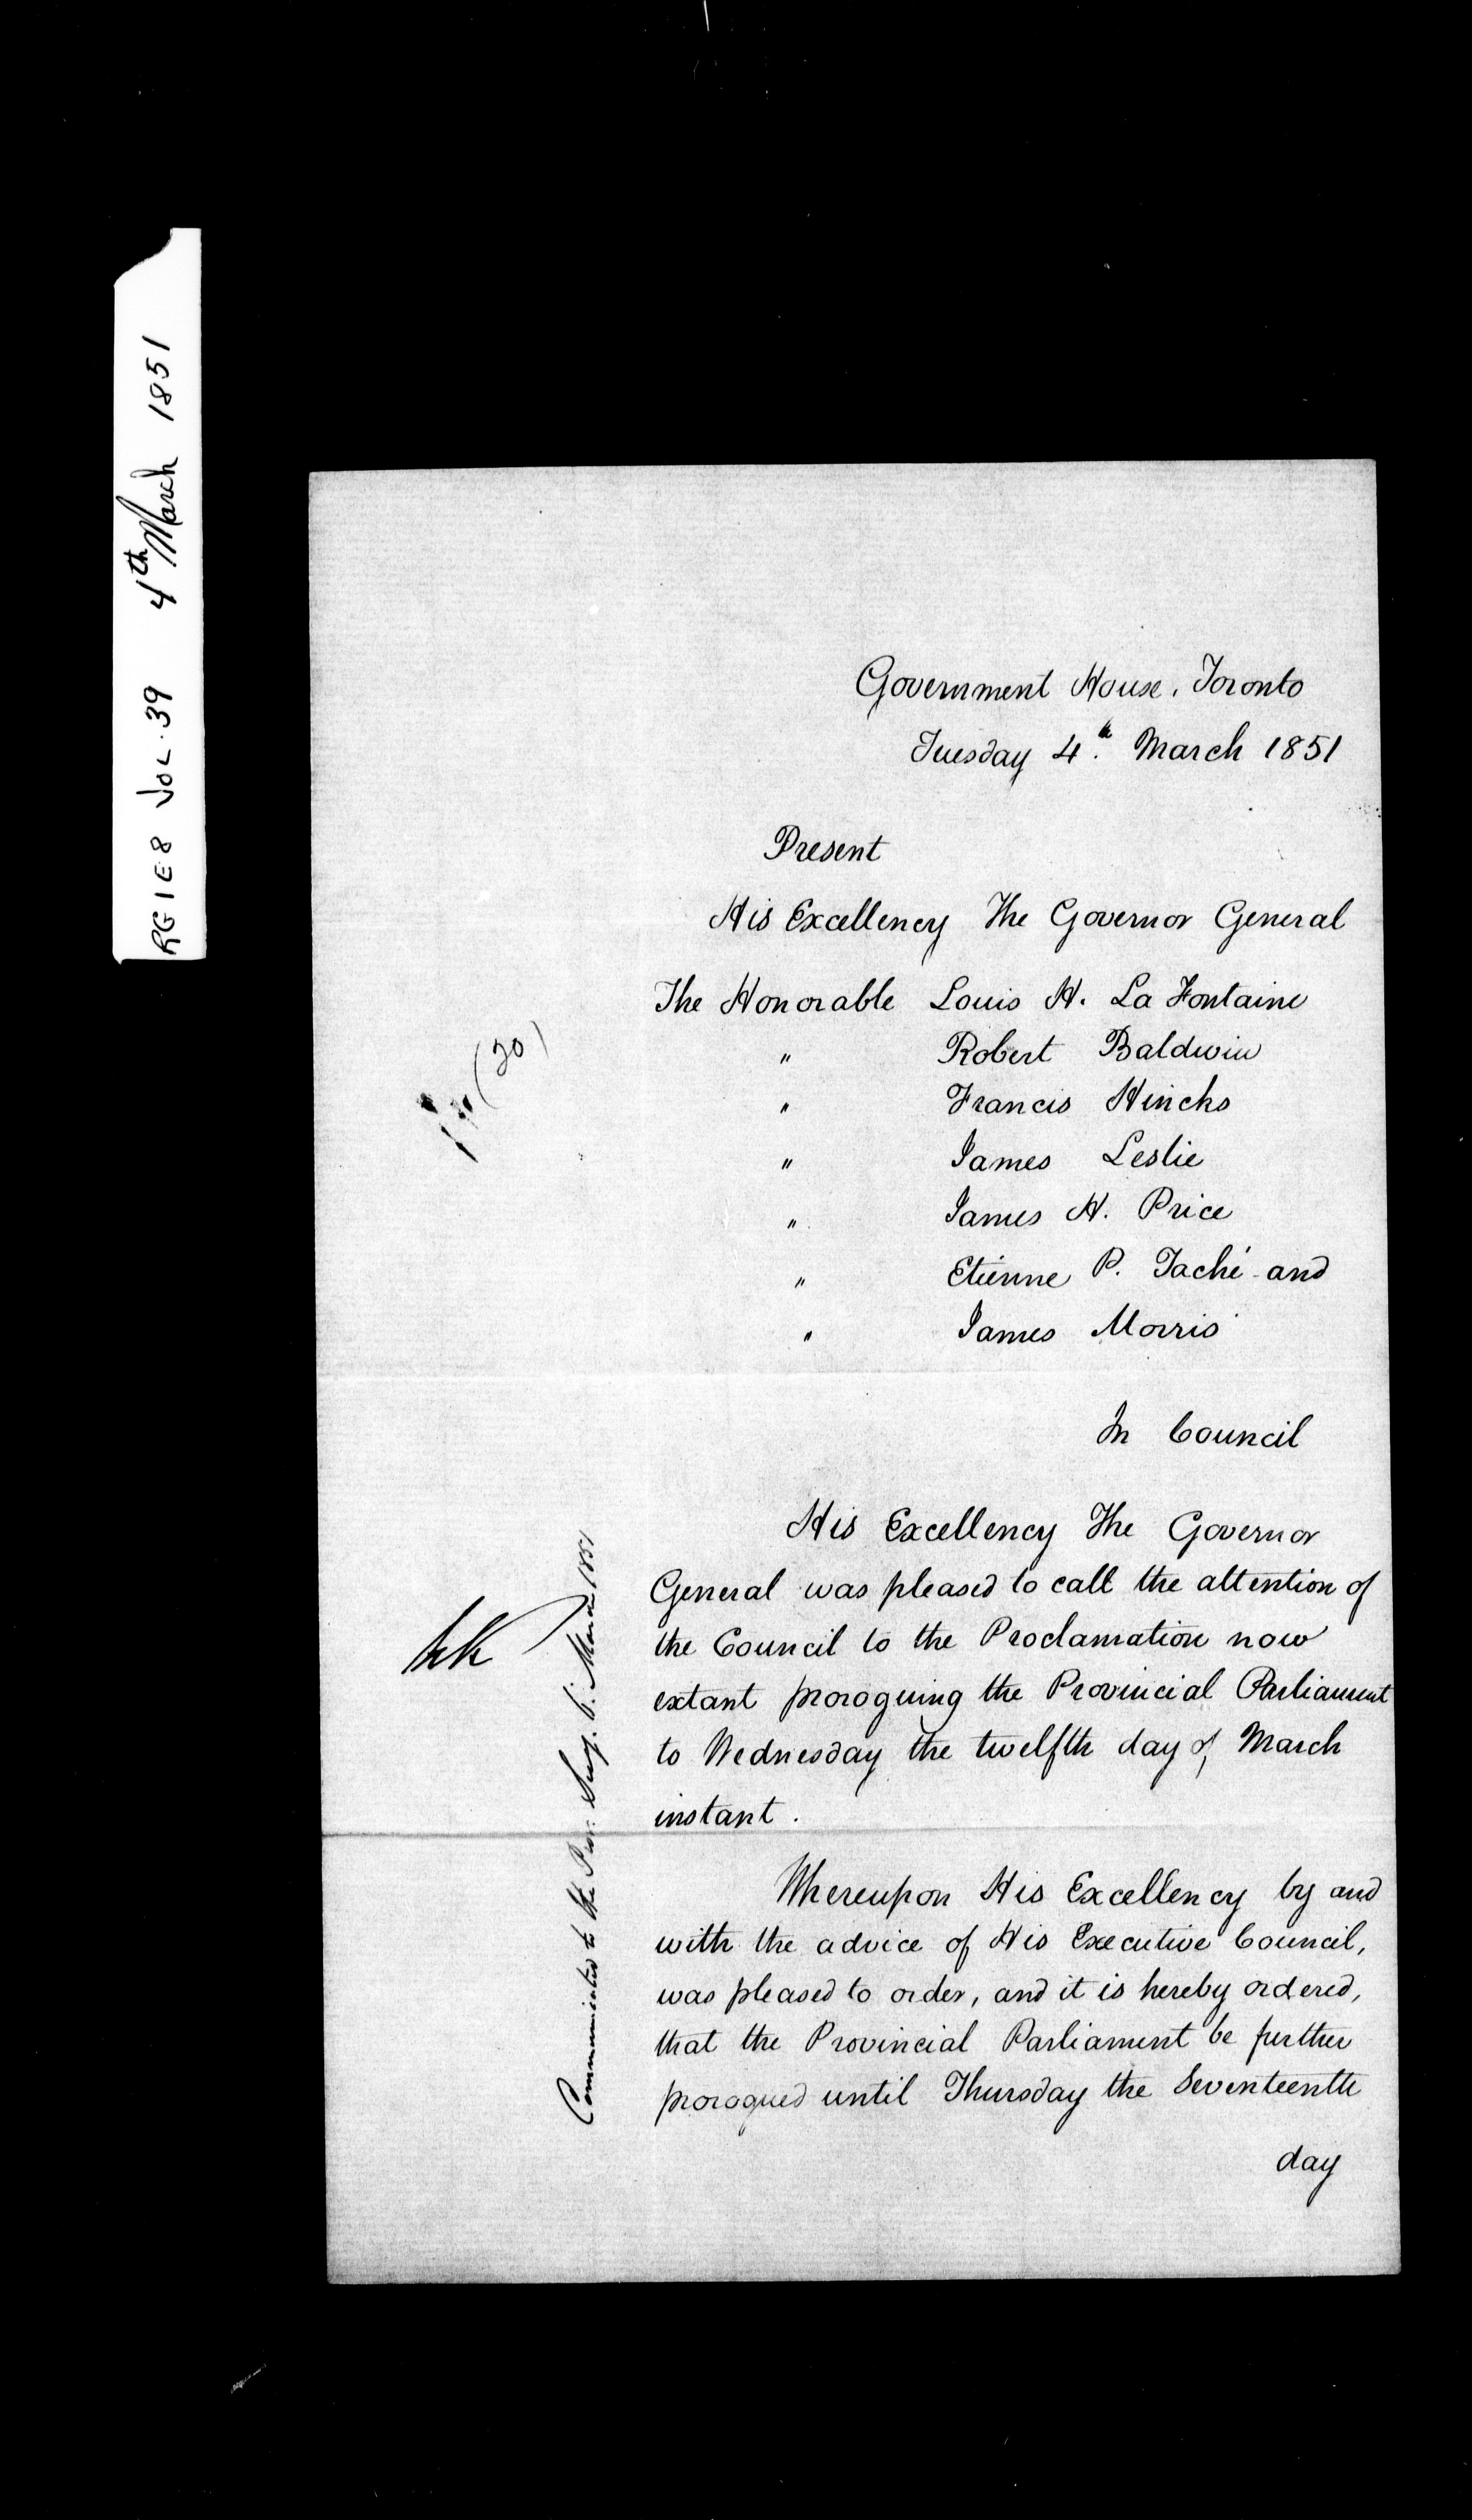 RG 1 E8 VOL. 39 4th March 1851
Government House, Toronto
Tuesday 4th. March 1851
Present
His Excellency The Governor General
The Honorable Louis H. La Fontaine
" Robert Baldwin
" Francis Hincks
(20)
" James Leslie
" James H. Price
" Etienne P. Taché and
" James Morris
In Council
His Excellency The Governor
General was pleased to call the attention of
the Council to the Proclamation now
extant proroguing the Provincial Parliament
to Wednesday the twelfth day of March
instant.
Communicated to the Prov. Secy. 6. March 1851
Whereupon His Excellency by and
with the advice of His Executive Council,
was pleased to order, and it is hereby ordered,
that the Provincial Parliament be further
prorogued until Thursday the Seventeenth
day